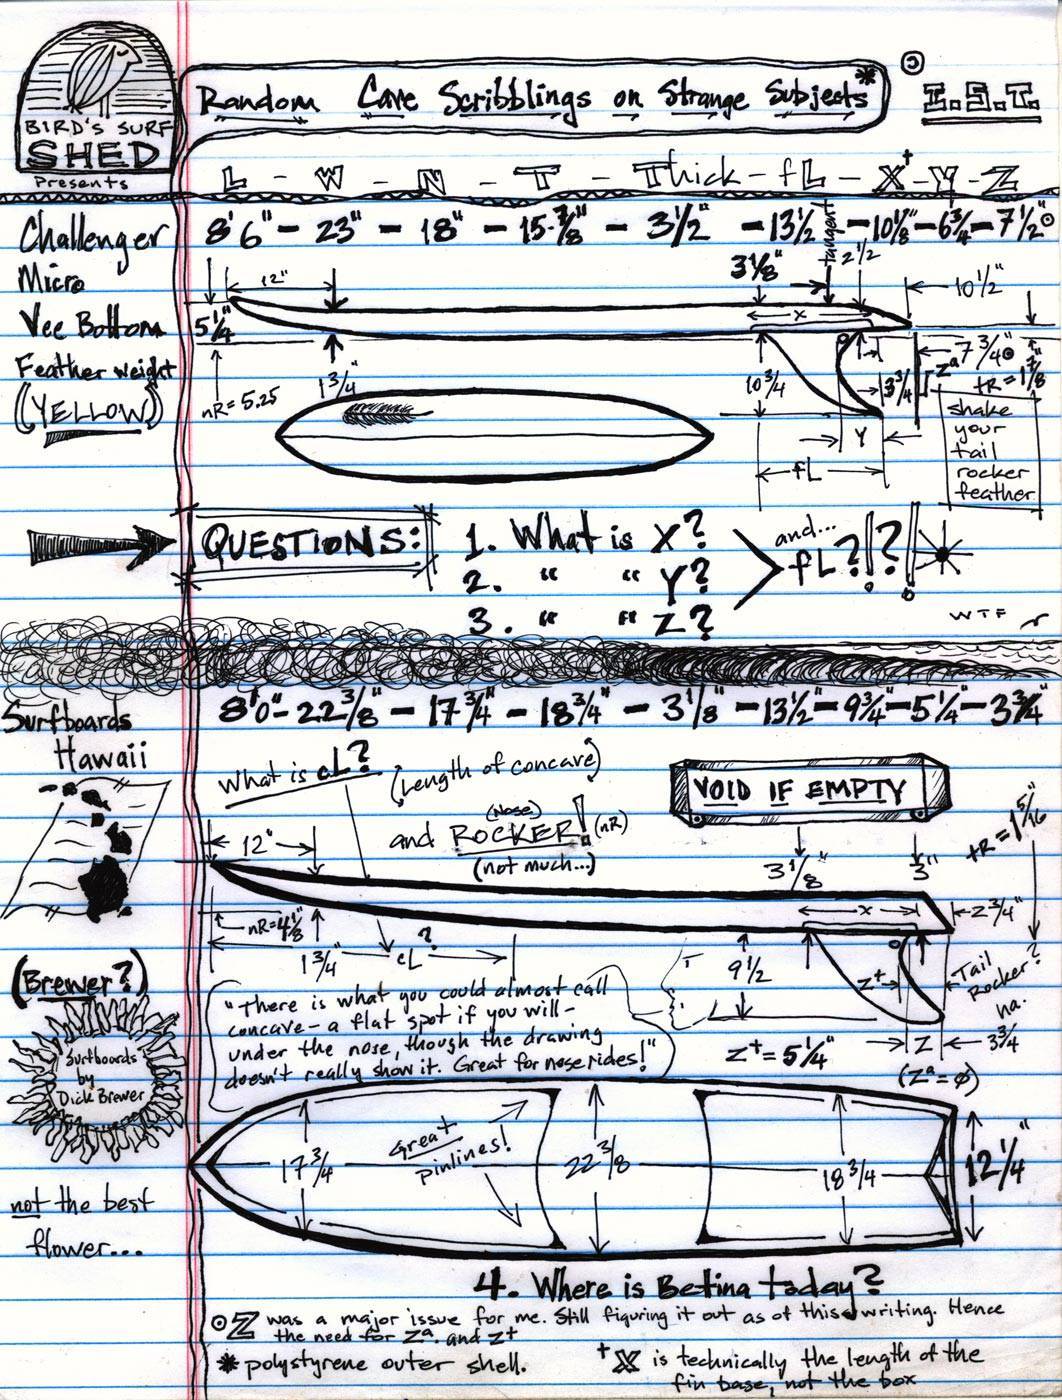 BIRD'S SURF
SHED
Presents
Random Cave Scribblings on Strange Subjects*
©
I.S.T.
L - W - N - T - Thick - fL - X⁺ - Y - Z
Challenger
Micro
Vee Bottom
Feather weight
(YELLOW)
8'6" - 23" - 18" - 15-7/8" - 3 1/2" - 13 1/2 - 10 1/8" - 6 3/4 - 7 1/2"⊙
tangent
12"
3 1/8"
2 1/2
10 1/2"
5 1/4"
x
nR = 5.25
1 3/4"
10 3/4
3 3/4
zª 7 3/4"⊙
tR = 1 7/8"
Y
fL
shake
your
tail
rocker
feather
QUESTIONS:
1. What is X?
2. " " Y?
3. " " Z?
and...
fL?!?!
WTF
Surfboards
Hawaii
8'0" - 22 3/8" - 17 3/4" - 18 3/4" - 3 1/8" - 13 1/2" - 9 3/4" - 5 1/4" - 3 3/4"
What is cL? (Length of concave)
VOID IF EMPTY
and ROCKER! (nR)
(Nose)
(not much...)
12"
3 1/8"
3"
tR = 1 5/16"
x
2 3/4"
nR = 4 1/8"
1 3/4"
cL?
9 1/2
z⁺
Tail
Rocker?
ha.
(Brewer?)
Surfboards
by
Dick Brewer
"There is what you could almost call
concave - a flat spot if you will -
under the nose, though the drawing
doesn't really show it. Great for noserides!"
z⁺ = 5 1/4"
Z
3 3/4
(Zª = ϕ)
17 3/4
Great
pinlines!
22 3/8
18 3/4
12 1/4"
not the best
flower...
4. Where is Betina today?
⊙Z was a major issue for me. Still figuring it out as of this writing. Hence
the need for Zª. and Z⁺
* polystyrene outer shell.
⁺X is technically the length of the
fin base, not the box